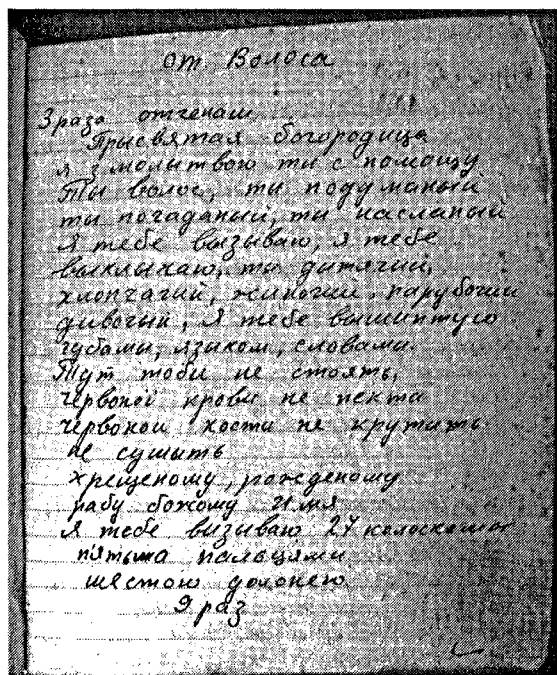 от Волоса
3 раза отченаш
Прысвятая богородица
я з молытвою ти с помощу
Ты волос, ты подуманый
ты погаданый, ты насланый
Я тебе вызываю, я тебе
выклыкаю, ты дитячий,
хлопчачий, жиночий, парубочий
дивочий, Я тебе вышиптую
губамы, языком, словами.
Тут тоби не стоять,
червоной кровы не пекти
червоной кости не крутить
не сушыть
хрещеному, рожденому
рабу божому имя
Я тебе визываю 27 колоскамы
пятьма пальцями
шестою долонею
9 раз